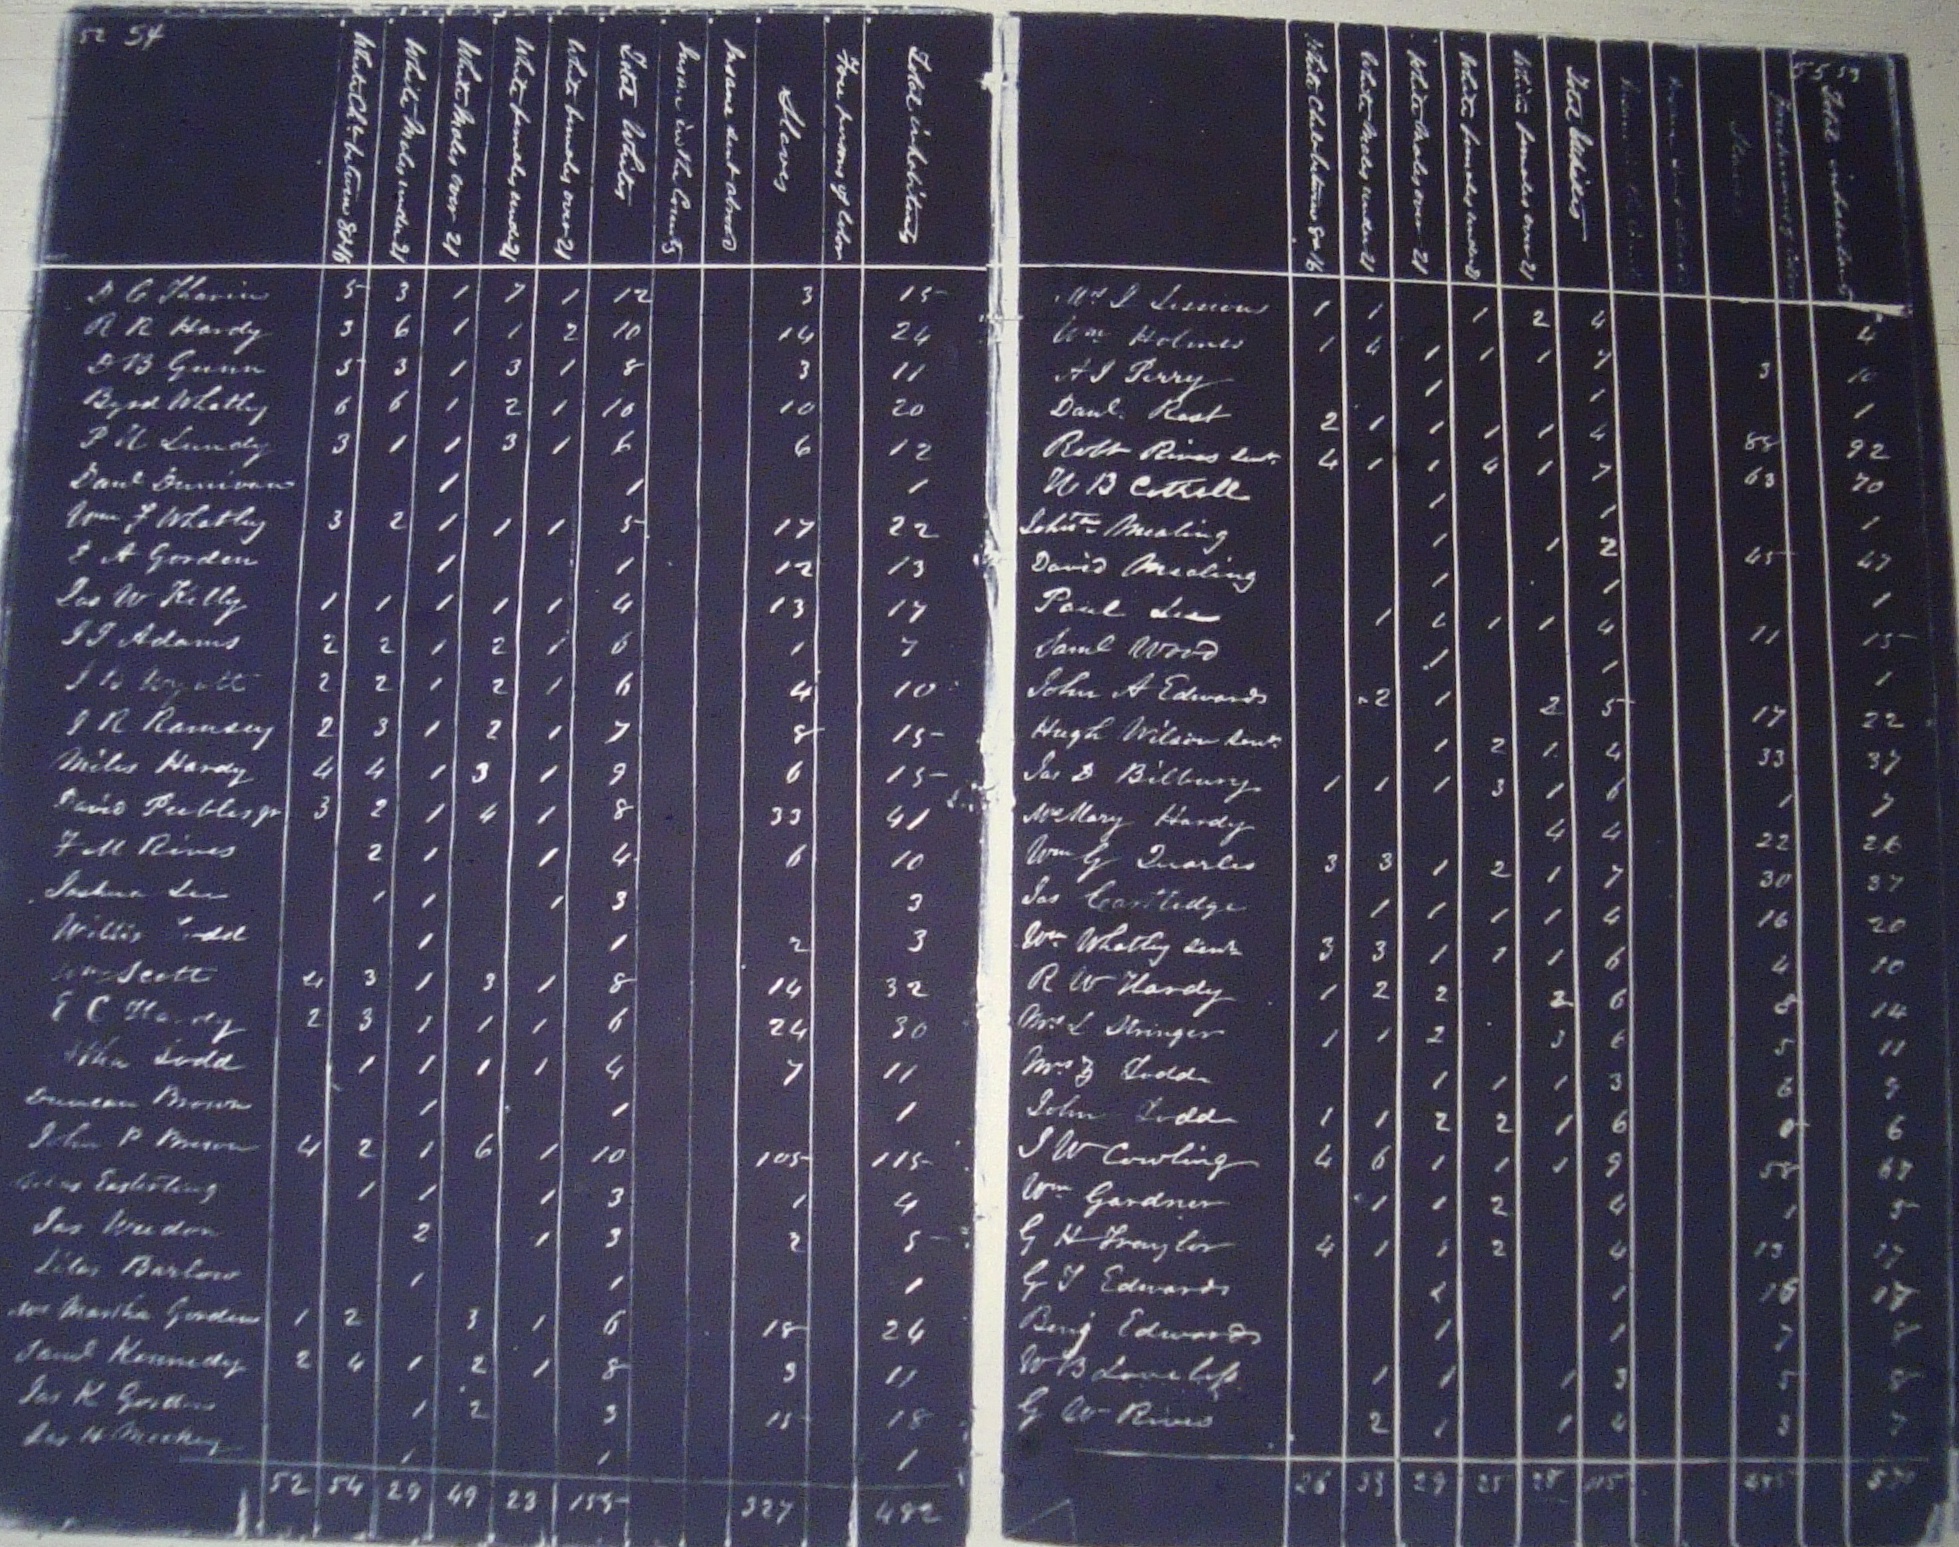 52 54
White Ch. between 8 & 16 White Males under 21 White Males over 21 White females under 21 White females over 21 Total Whites Insane in the County Insane sent abroad Slaves Free persons of Color Total inhabitants
D C 5 3 1 7 1 12 3 15
R R Hardy 3 6 1 1 2 10 14 24
D B Gunn 5 3 1 3 1 8 3 11
Byrd Whatley 6 6 1 2 1 10 10 20
Lundy 3 1 1 3 1 6 6 12
Danl Dunivan 1 1 1
Wm F Whatley 3 2 1 1 1 5 17 22
E A Gorden 1 1 12 13
Jas W Kelly 1 1 1 1 1 4 13 17
J J Adams 2 2 1 2 1 6 1 7
J B Wyatt 2 2 1 2 1 6 4 10
J R Ramsey 2 3 1 2 1 7 8 15
Miles Hardy 4 4 1 3 1 9 6 15
David Peebles jr 3 2 1 4 1 8 33 41
F M Rives 2 1 1 4 6 10
Joshua Lee 1 1 1 3 3
Willis 1 1 2 3
Wm Scott 4 3 1 3 1 8 14 32
E C Hardy 2 3 1 1 1 6 24 30
Todd 1 1 1 1 4 7 11
Duncan Brown 1 1 1
John P Brown 4 2 1 6 1 10 105 115
Easterling 1 1 1 3 1 4
Jas Weedon 2 1 3 2 5
Silas Barlow 1 1 1
Mrs Martha Gorden 1 2 3 1 6 18 24
Saml Kennedy 2 4 1 2 1 8 3 11
Jas K Gorden 1 2 3 15 18
Jas H 1 1 1
52 54 29 49 23 155 327 482
55
White Ch between 8 & 16 White Males under 21 White Males over 21 White females under 21 White females over 21 Total Whites Slaves Total inhabitants
Mrs J 1 1 1 2 4 4
Wm Holmes 1 4 1 1 1 7 3 10
A J Perry 1 1 1
Danl. Rast 2 1 1 1 1 4 88 92
Robt Rives Senr. 4 1 1 4 1 7 63 70
W B Cottrell 1 1 1
Mealing 1 1 2 45 47
David Mealing 1 1 1
Paul Lee 1 1 1 1 4 11 15
Saml Wood 1 1 1
John A Edwards 2 1 2 5 17 22
Hugh Wilson Senr. 1 2 1 4 33 37
Jas D Bilbury 1 1 1 3 1 6 1 7
Mrs Mary Hardy 4 4 22 26
Wm G Quarles 3 3 1 2 1 7 30 37
Jas Cartledge 1 1 1 1 4 16 20
Wm Whatley Senr 3 3 1 1 1 6 4 10
R W Hardy 1 2 2 2 6 8 14
Mrs L Stringer 1 1 2 3 6 5 11
Mrs Z Todd 1 1 1 3 6 9
John Todd 1 1 2 2 1 6 6
J W Cowling 4 6 1 1 1 9 58 67
Wm Gardner 1 1 2 4 1 5
G H Traylor 4 1 1 2 4 13 17
G T Edwards 1 1 16 17
Benj Edwards 1 1 7 8
W B Loveless 1 1 1 3 5 8
G W Rives 2 1 1 4 3 7
26 33 29 25 28 115